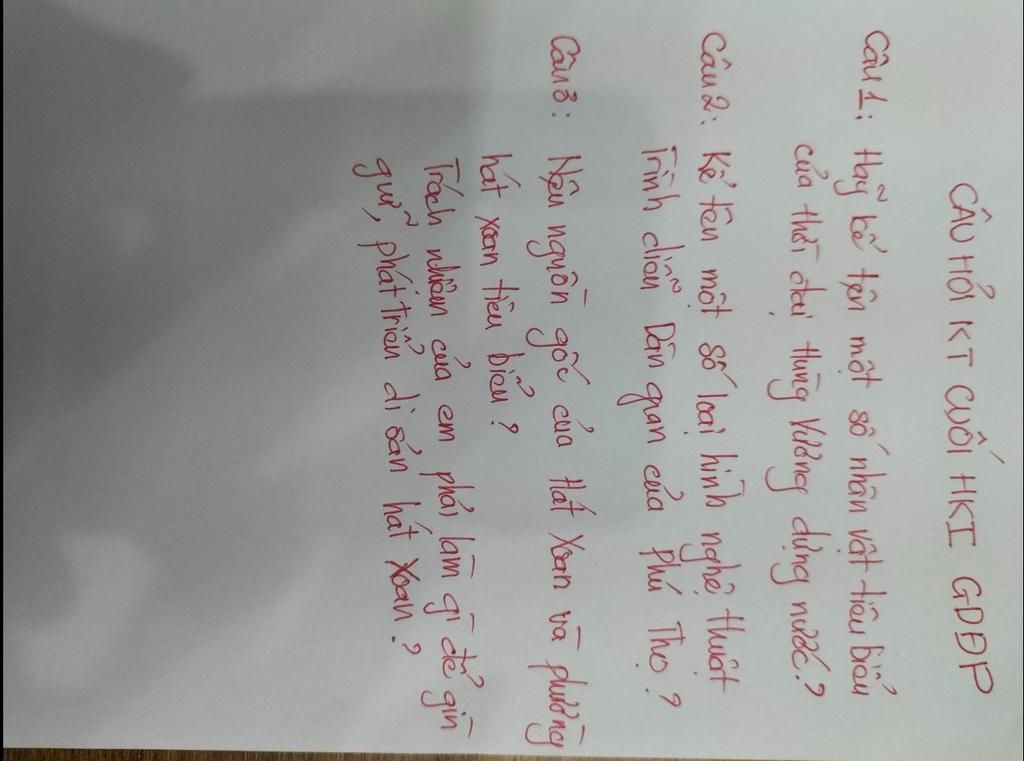 CÂU HỎI KT CUỐI HKI GDĐP
Câu 1: Hãy kể tên một số nhân vật tiêu biểu
của thời đại Hùng Vương dựng nước?
Câu 2: Kể tên một số loại hình nghệ thuật
Trình diễn Dân gian của Phú Thọ?
Câu 3: Nêu nguồn gốc của Hát Xoan và phường
hát xoan tiêu biểu?
Trách nhiệm của em phải làm gì để gìn
giữ, phát triển di sản hát Xoan?